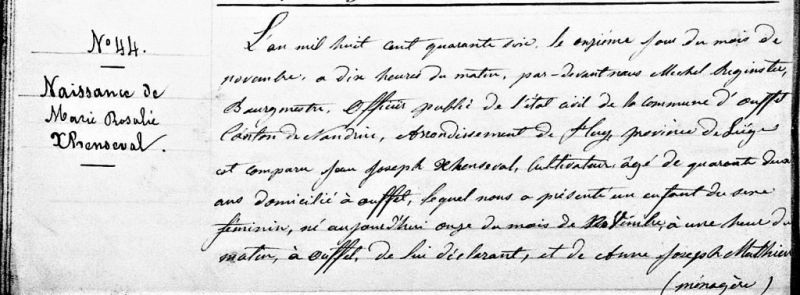 N° 44.
Naissance de
Marie Rosalie
Xhenseval.
L'an mil huit cent quarante six, le onzième jour du mois de
novembre, a dix heures du matin, par-devant nous Michel Reginster,
Bourgmestre, Officier public de l'état civil de la commune d'ouffet
Canton de Nandrin, Arrondissement de Huy, province de Liége
est comparu Jean Joseph Xhenseval, Cultivateur âgé de quarante deux
ans domicilié à ouffet, lequel nous a présenté un enfant du sexe
féminin, né aujourd'hui onze du mois de Novembre, à une heure du
matin, à Ouffet, de lui déclarant, et de Anne Joseph Mathieu
(ménagère)